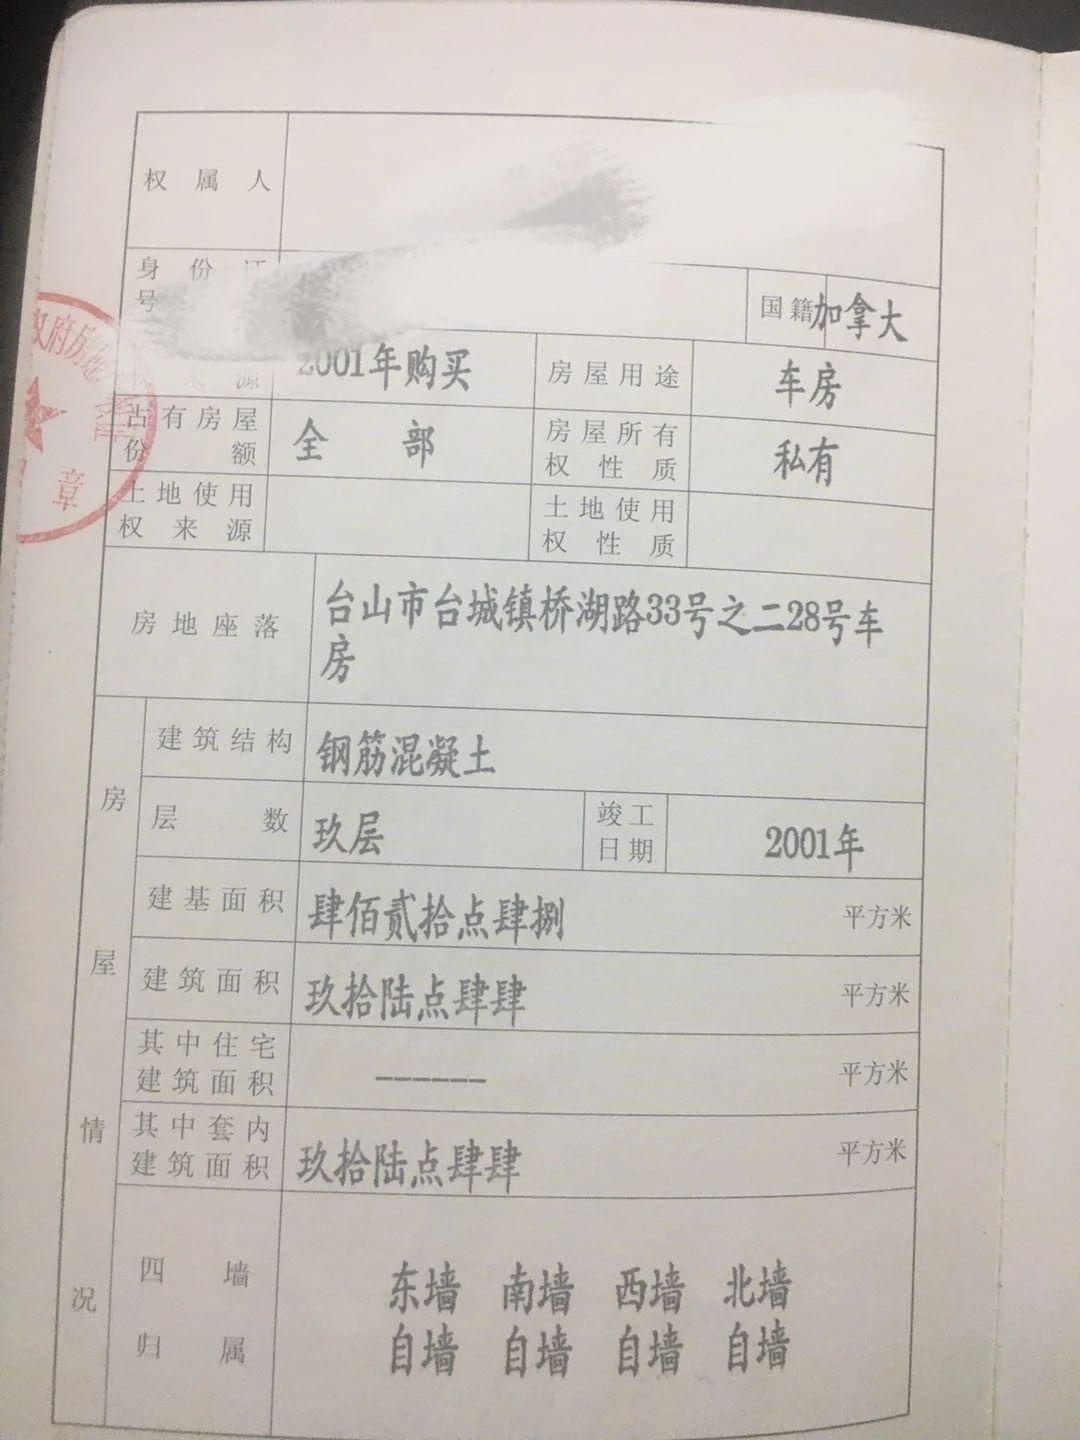 权属人
身份证
号
国籍 加拿大
权来源 2001年购买 房屋用途 车房
占有房屋份额 全部 房屋所有权性质 私有
土地使用权来源 土地使用权性质
房地座落 台山市台城镇桥湖路33号之二28号车
房
房屋情况
建筑结构 钢筋混凝土
层数 玖层 竣工日期 2001年
建基面积 肆佰贰拾点肆捌 平方米
建筑面积 玖拾陆点肆肆 平方米
其中住宅建筑面积 ------ 平方米
其中套内建筑面积 玖拾陆点肆肆 平方米
四墙归属
东墙 南墙 西墙 北墙
自墙 自墙 自墙 自墙
府房
章